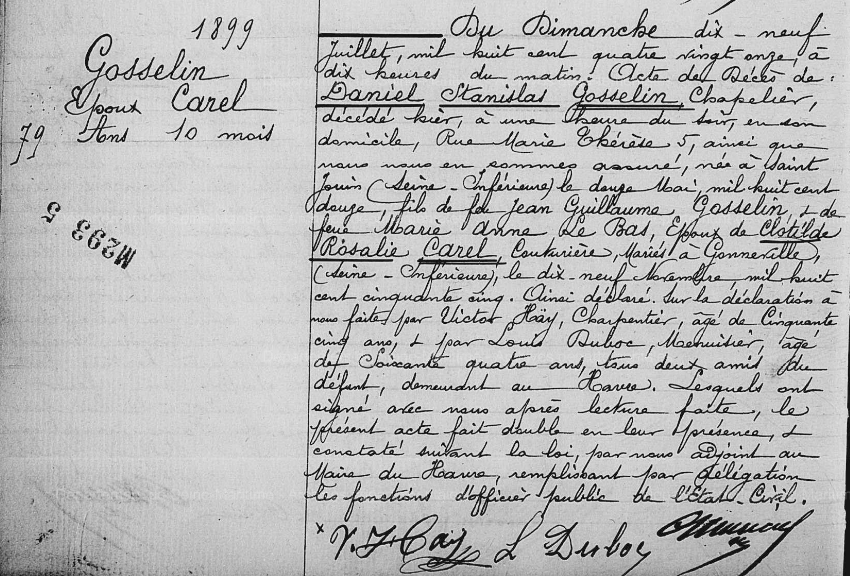 1899
Gosselin
Epoux Carel
79 Ans 10 mois
M293 5
Du Dimanche dix-neuf
Juillet, mil huit cent quatre vingt onze, à
dix heures du matin. Acte de Décès de :
Daniel Stanislas Gosselin, Chapelier,
décédé hier, à une heure du soir, en son
domicile, Rue Marie Thérèse 5, ainsi que
nous nous en sommes assuré, née à Saint
Jouin (Seine-Inférieure) le douze Mai, mil huit cent
douze, fils de feu Jean Guillaume Gosselin, & de
feue Marie Anne Le Bas, Epoux de Clotilde
Rosalie Carel, Couturière, Mariés à Gonneville,
(Seine-Inférieure), le dix neuf Novembre, mil huit
cent cinquante cinq. Ainsi déclaré. Sur la déclaration à
nous faite par Victor Häy, Charpentier, âgé de Cinquante
cinq ans, & par Louis Duboc, Menuisier, âgé
de Soixante quatre ans, tous deux amis du
défunt, demeurant au Havre. Lesquels ont
signé avec nous après lecture faite, le
présent acte fait double en leur présence, &
constaté suivant la loi, par nous adjoint au
Maire du Havre, remplissant par délégation
les fonctions d'officier public de l'Etat-Civil.
x V. Hay L Duboc